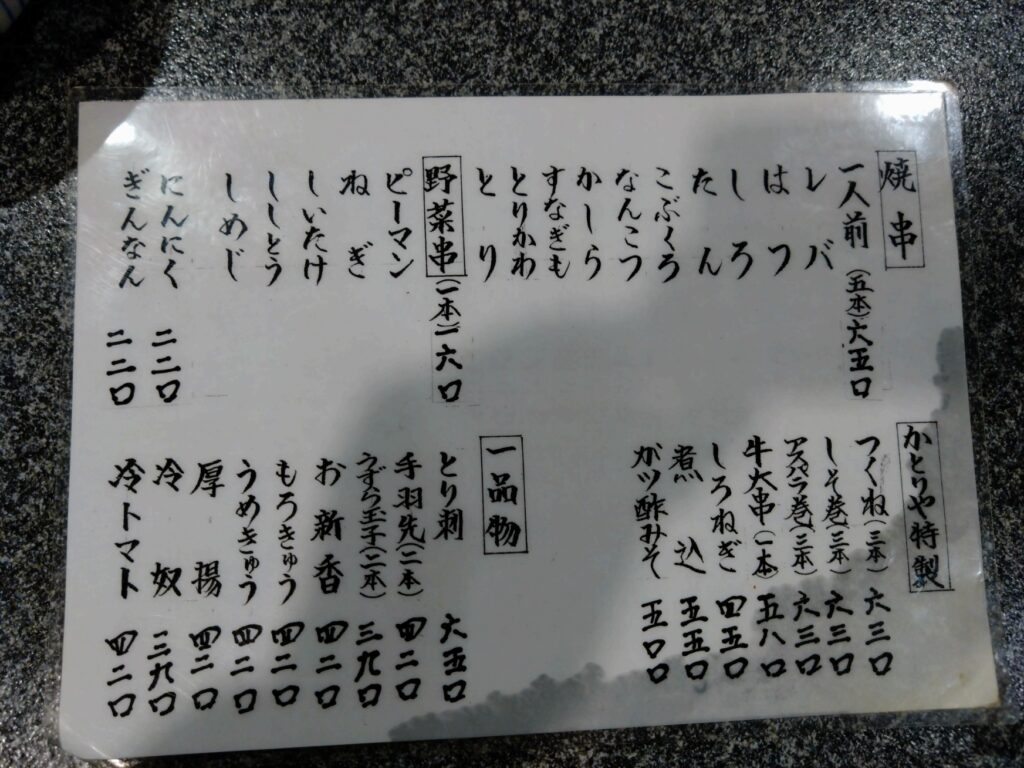 焼串
一人前(五本)六五〇
レバ
はつ
しろ
たん
こぶくろ
なんこつ
かしら
すなぎも
とりかわ
とり
野菜串(一本)一六〇
ピーマン
ねぎ
しいたけ
ししとう
しめじ
にんにく 二二〇
ぎんなん 二二〇
かとりや特製
つくね(三本) 六三〇
しそ巻(三本) 六三〇
アスパラ巻(三本) 六三〇
牛大串(一本) 五八〇
しろねぎ 四五〇
煮込 五五〇
ガツ酢みそ 五〇〇
一品物
とり刺 六五〇
手羽先(二本) 四二〇
うずら玉子(二本) 三九〇
お新香 四二〇
もろきゅう 四二〇
うめきゅう 四二〇
厚揚 四二〇
冷奴 三九〇
冷トマト 四二〇